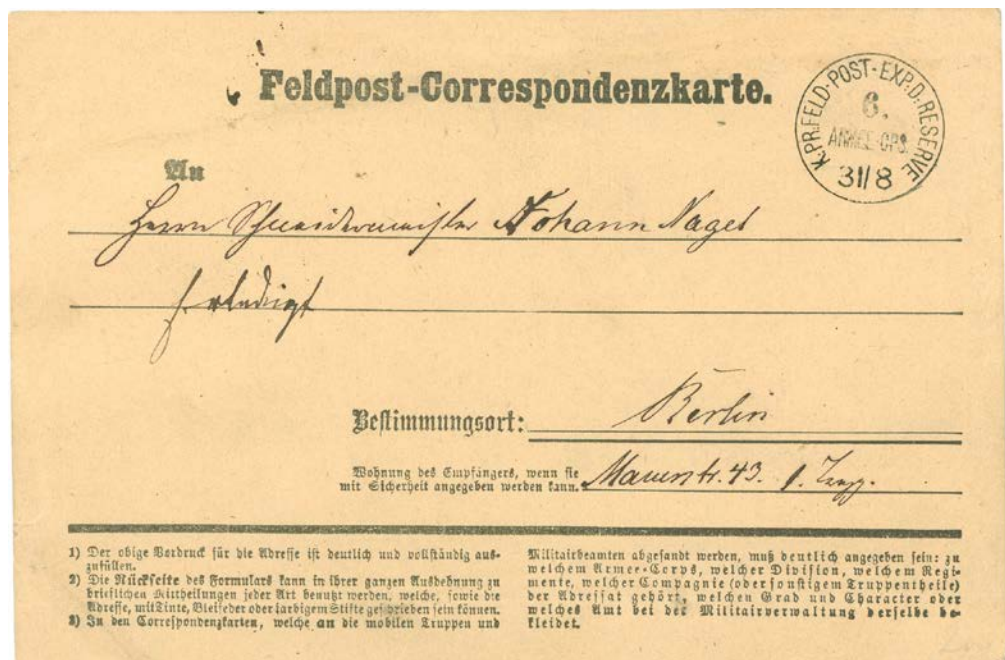 Feldpost-Correspondenzkarte.
K. PR. FELD-POST-EXP. D. RESERVE
6.
ARMEE-CPS.
31/8
An
Herrn Schneidermeister Johann Nagel
Berlin
Bestimmungsort:
Wohnung des Empfängers, wenn sie
mit Sicherheit angegeben werden kann.
Mauerstr. 43. 1. Trepp.
1) Der obige Vordruck für die Adresse ist deutlich und vollständig aus-
zufüllen.
2) Die Rückseite des Formulars kann in ihrer ganzen Ausdehnung zu
brieflichen Mittheilungen jeder Art benutzt werden, welche, sowie die
Adresse, mit Tinte, Bleifeder oder farbigem Stifte geschrieben sein können.
3) In den Correspondenzkarten, welche an die mobilen Truppen und
Militairbeamten abgesandt werden, muß deutlich angegeben sein: zu
welchem Armee-Corps, welcher Division, welchem Regi-
mente, welcher Compagnie (oder sonstigem Truppentheile)
der Adressat gehört, welchen Grad und Character oder
welches Amt bei der Militairverwaltung derselbe be-
kleidet.